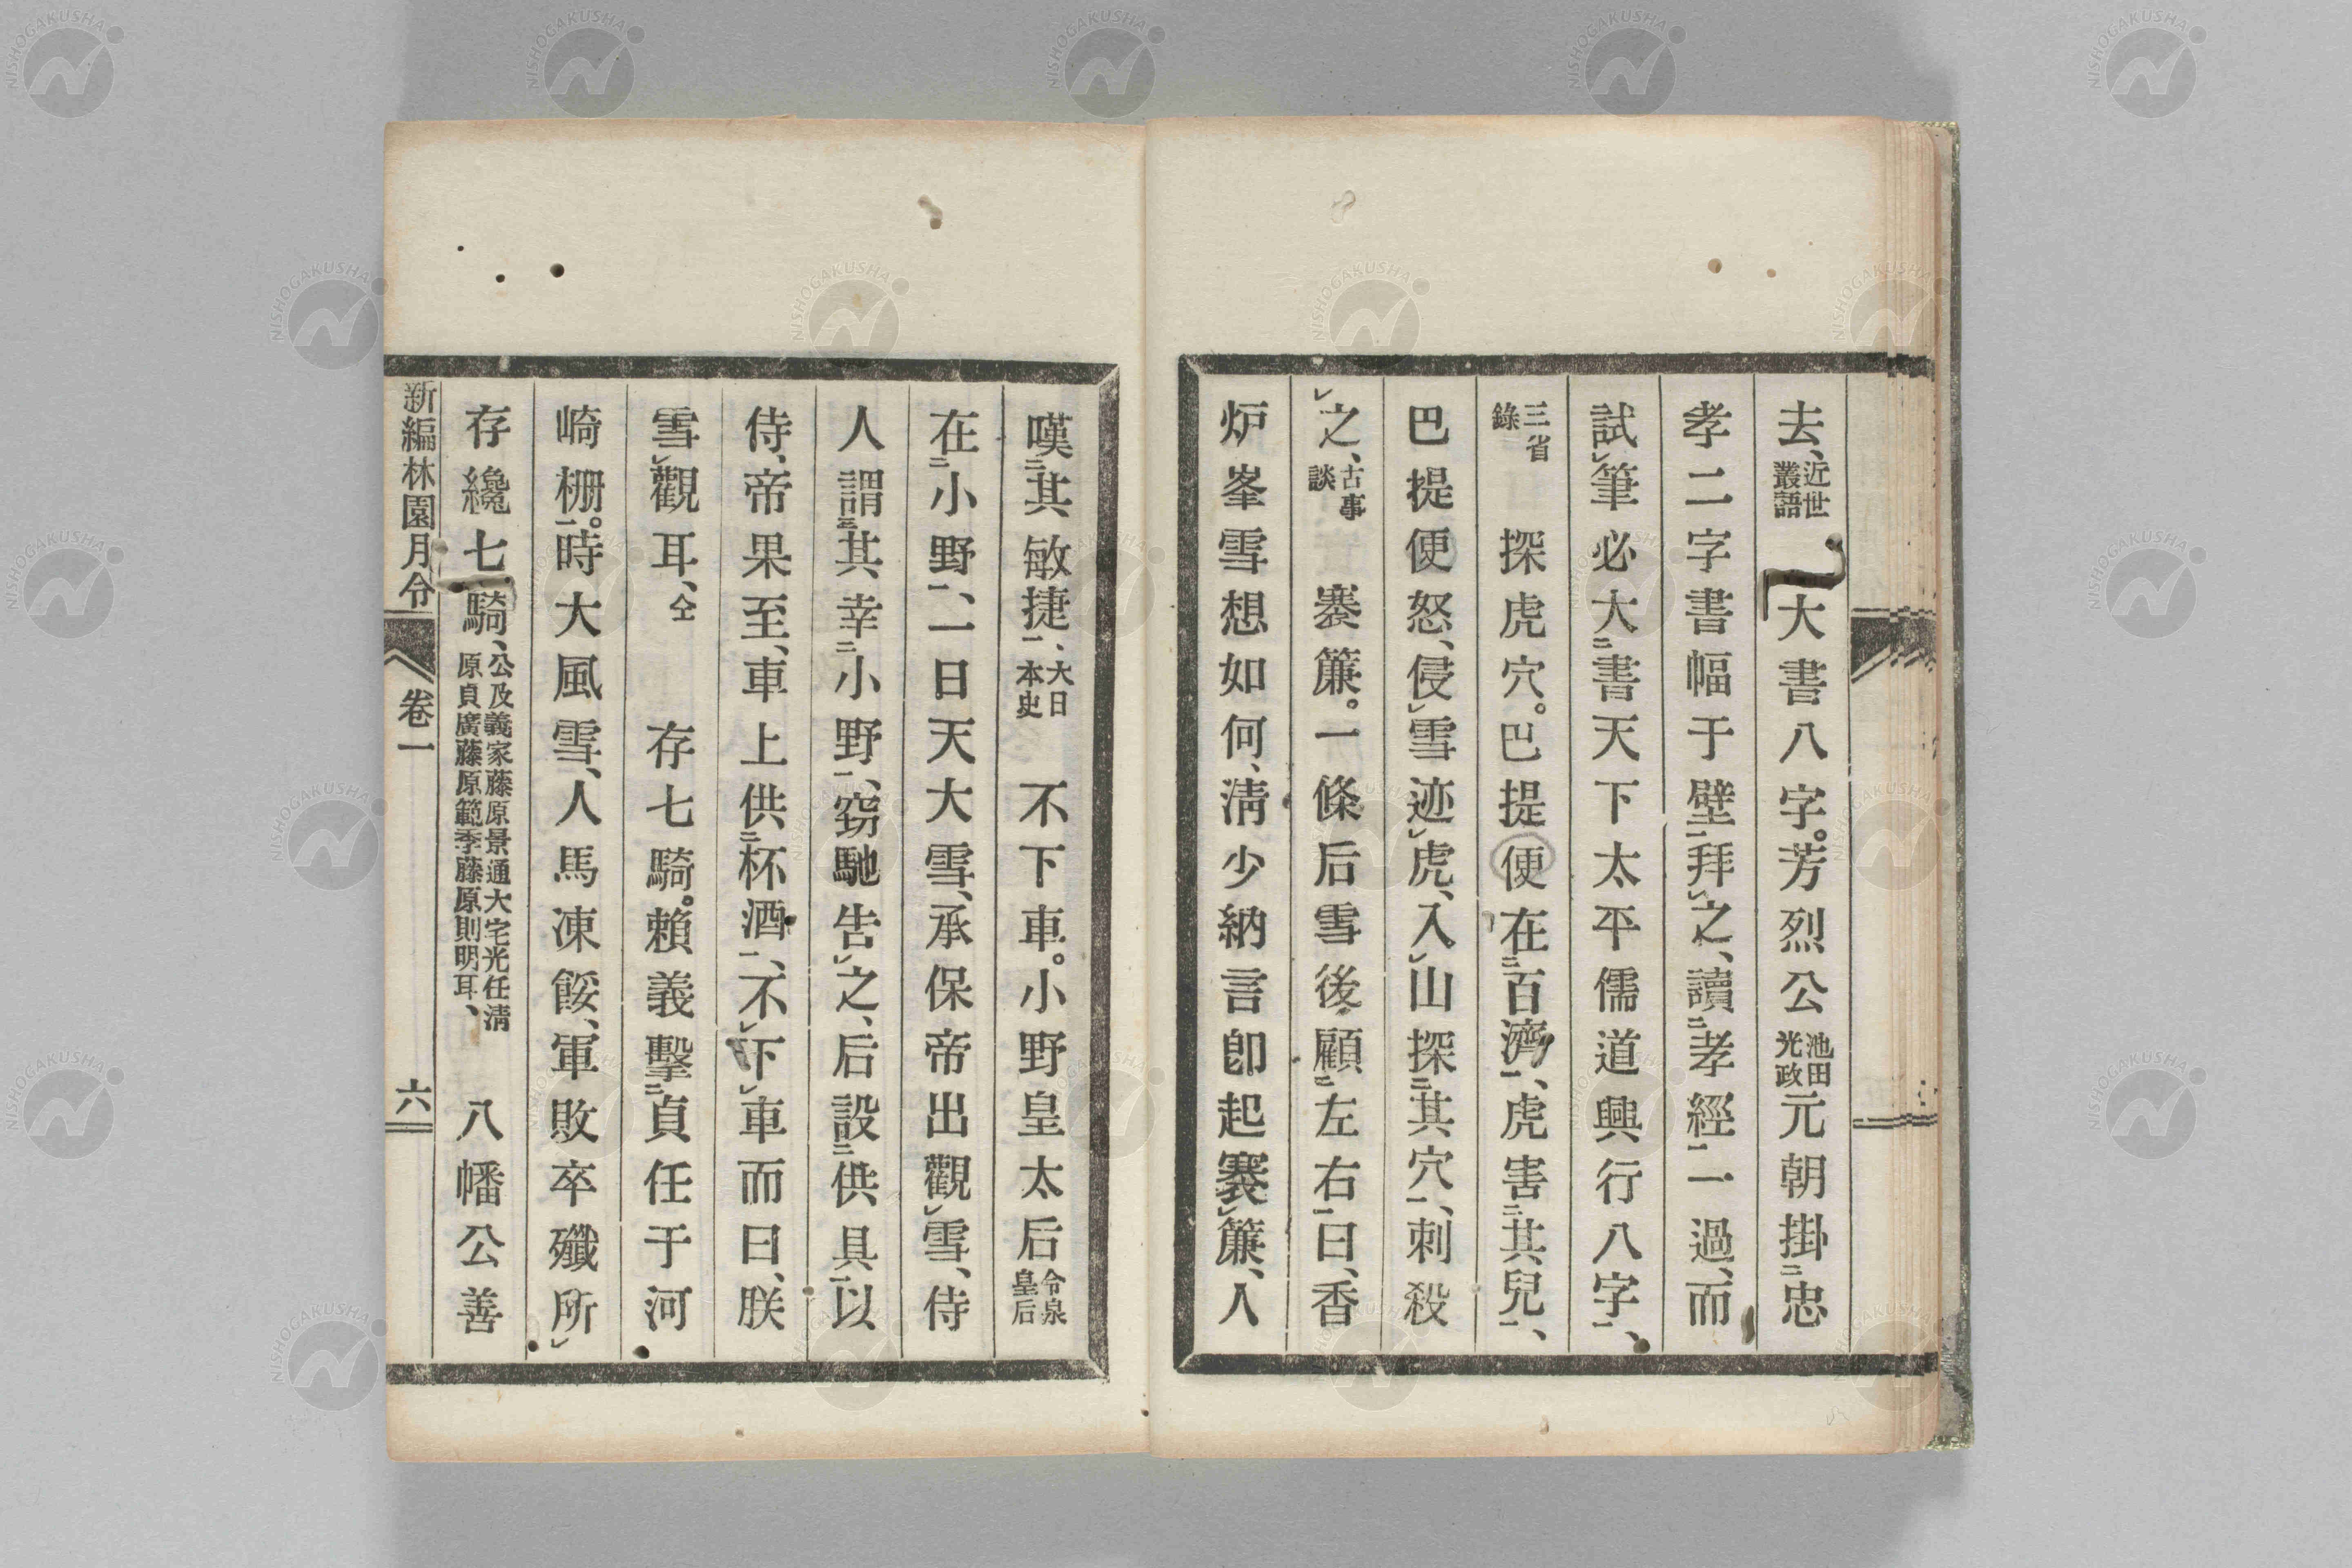 去、近世叢語　大書八字。芳烈公池田光政元朝掛㆓忠
孝二字書幅于壁㆒拜㆑之、讀㆓孝經㆒一過、而
試㆑筆必大㆓書天下太平儒道興行八字㆒、
三省錄　探虎穴。巴提便在㆓百濟㆒、虎害㆓其兒㆒、
巴提便怒、侵㆑雪迹㆑虎、入㆑山探㆓其穴㆒、刺殺
㆑之、古事談　褰簾。一條后雪後顧㆓左右㆒曰、香
炉峯雪想如何、淸少納言卽起褰㆑簾、人
嘆㆓其敏捷㆒、大日本史　不下車。小野皇太后令泉皇后
在㆓小野㆒、一日天大雪、承保帝出觀㆑雪、侍
人謂㆘其幸㆓小野㆒、窈馳告㆑之、后設㆓供具㆒以
侍、帝果至、車上供㆓杯酒㆒、不㆑下㆑車而曰、朕
雪㆑觀耳、仝　存七騎。賴義擊㆓貞任于河
崎柵㆒。時大風雪、人馬凍餒、軍敗卒殲所㆑
存纔七騎、公及義家藤原景通大宅光任淸原貞廣藤原範季藤原則明耳、　八幡公善
新編林園月令　卷一　六
NISHOGAKUSHA